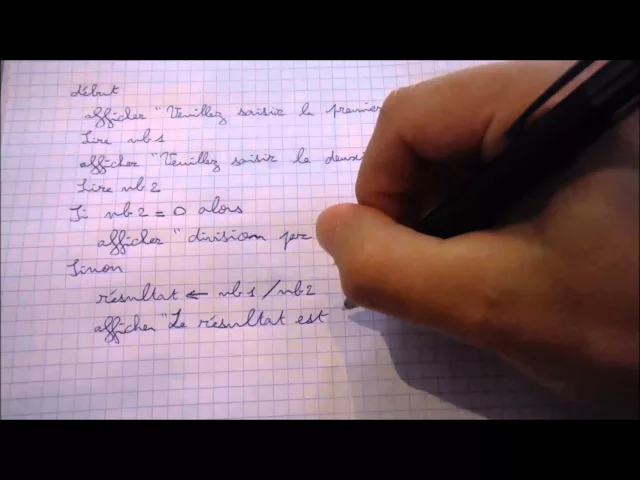 début
afficher "Veuillez saisir le premier
Lire nb1
afficher "Veuillez saisir le deuxi
Lire nb2
Si nb2 = 0 alors
afficher "division par
Sinon
résultat ← nb1 / nb2
afficher "Le résultat est